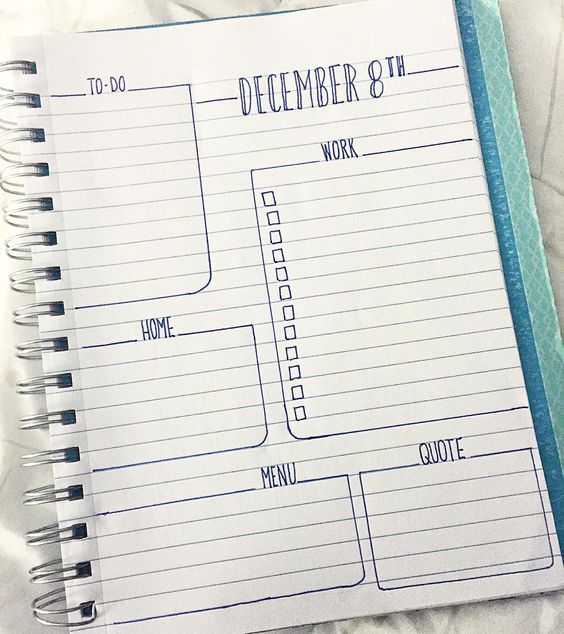 TO-DO
DECEMBER 8TH
WORK
HOME
MENU
QUOTE